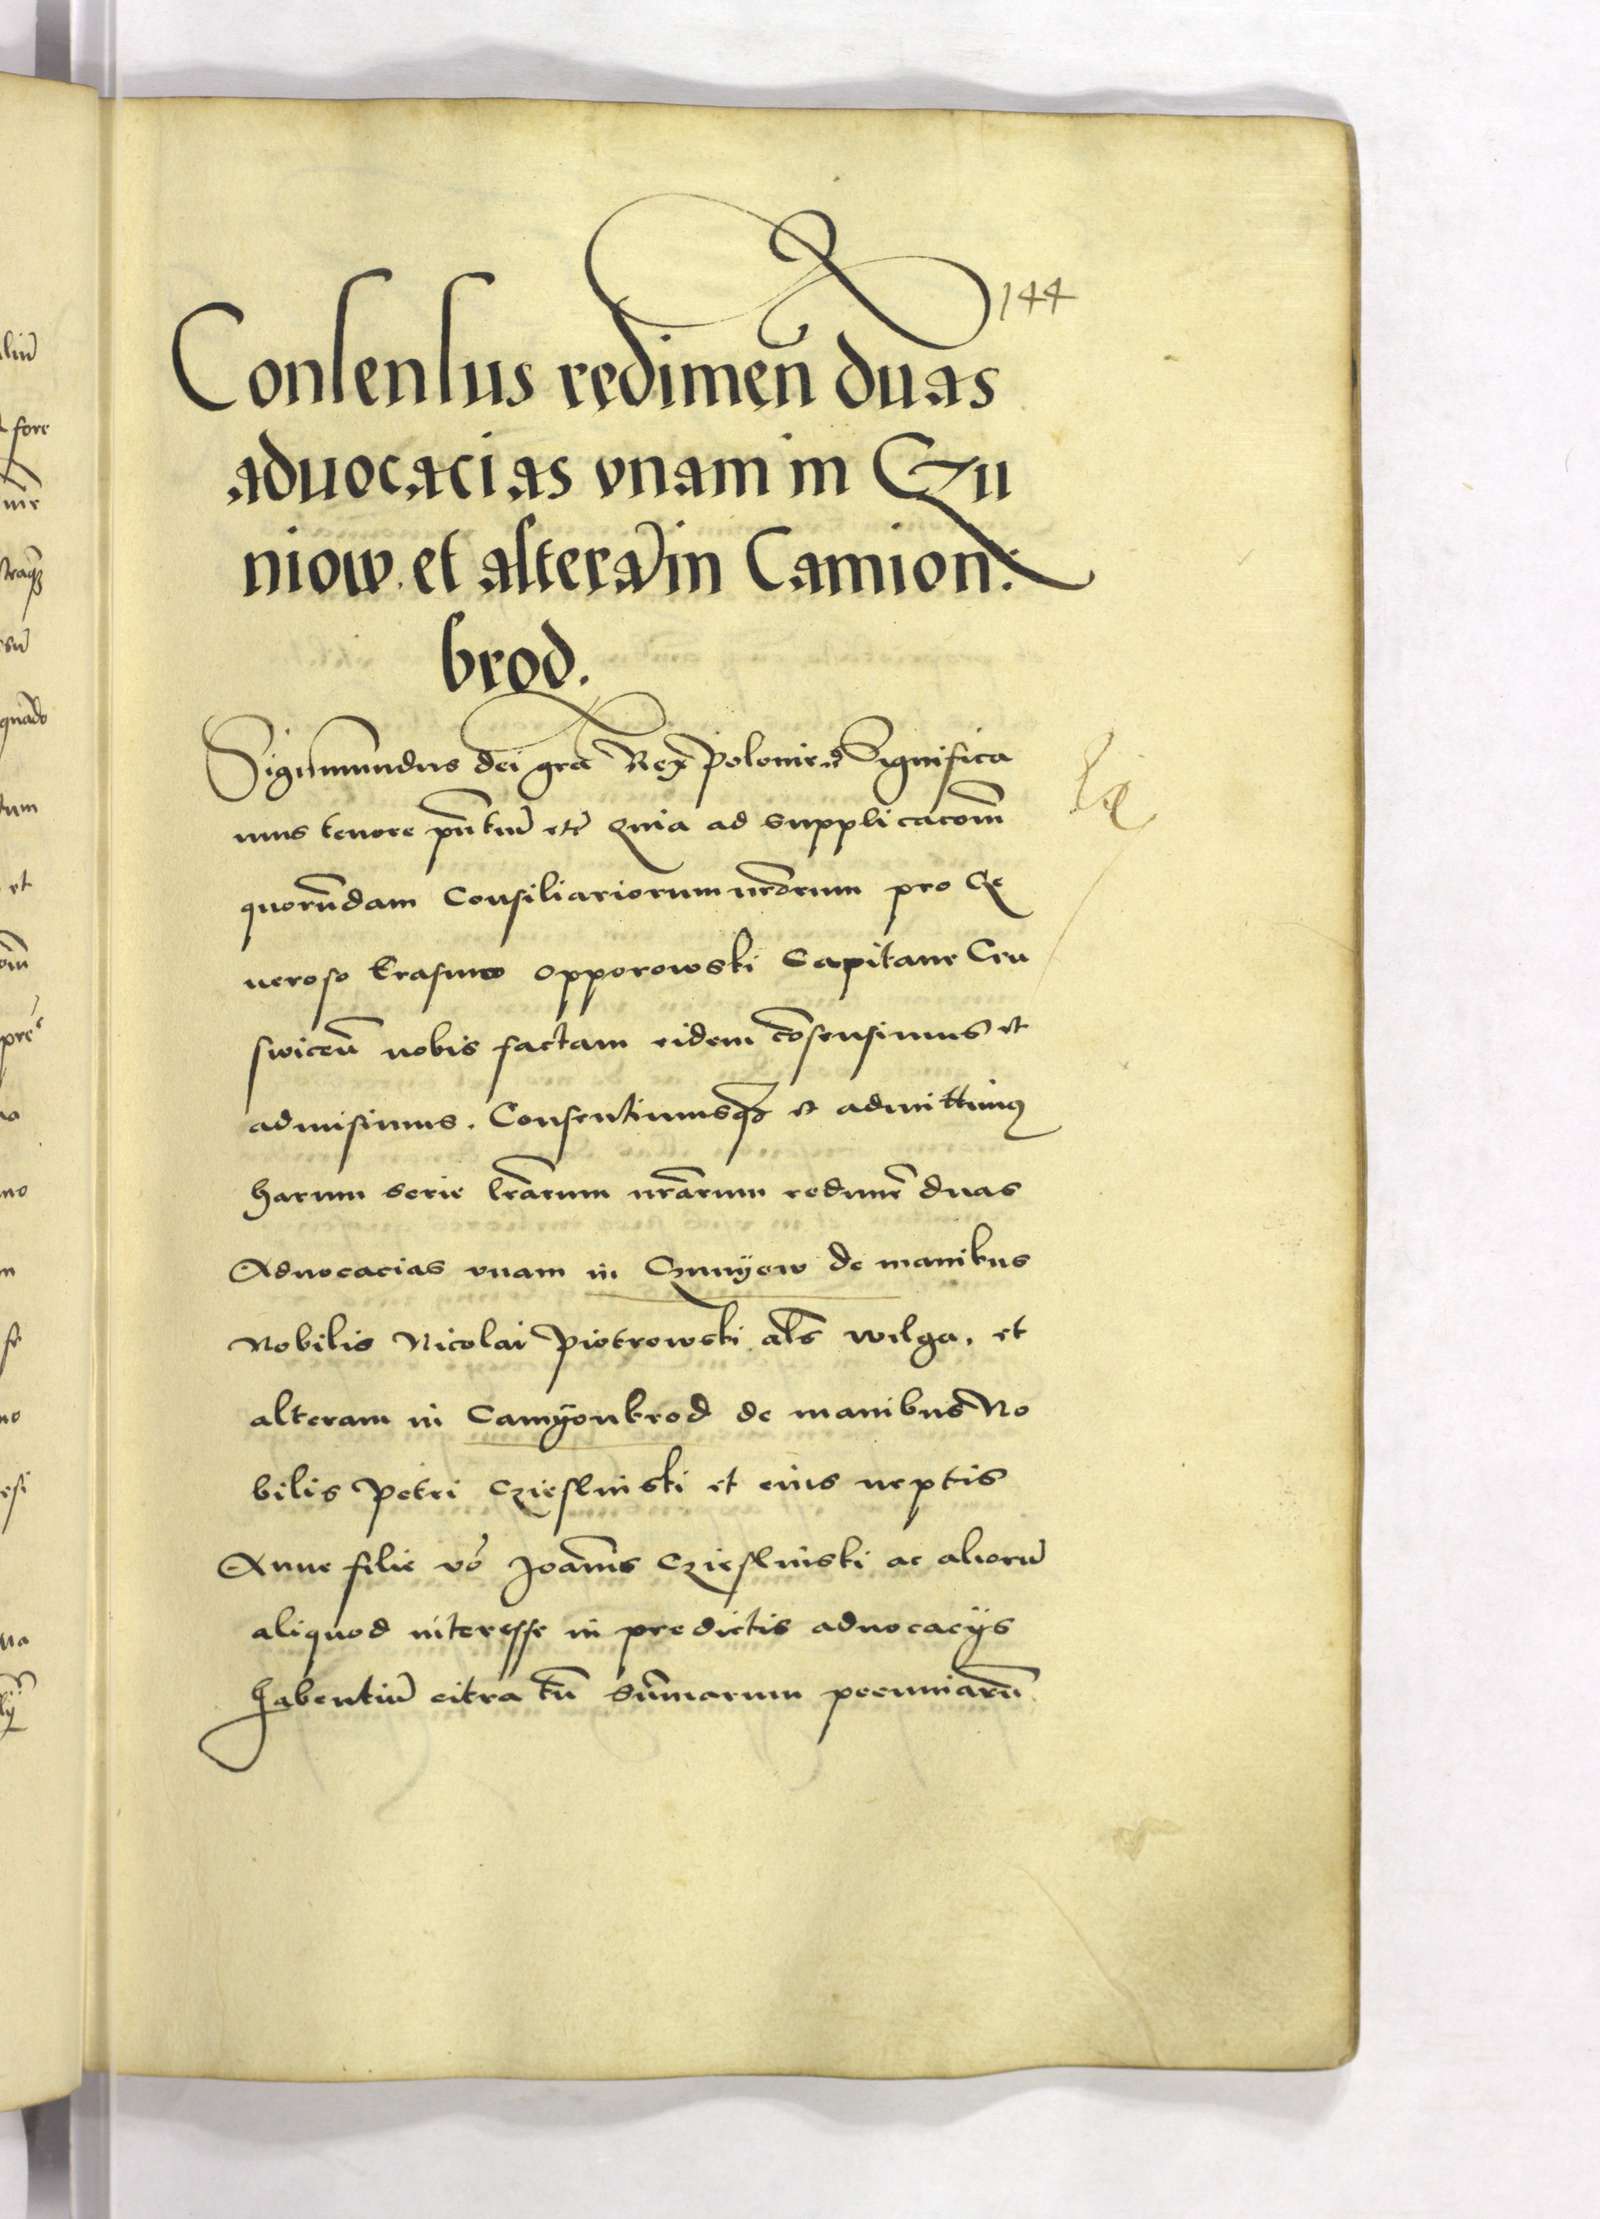 144
Consensus redimen̄ duas
aduocacias vnam in Czu
niow. et alterā in Camion:
brod.
Sigismundus dei gra Rex Polonie etc̄ Significa
mus tenore pn̄tiū etc̄ Quia ad supplicacōm
quorūdam Consiliariorum nrōrum pro Ge
neroso Erasmo Opporowski Capitaneo Cru
swicen̄ nobis factam eidem cōsensimus et
admisimus. Consentimusqꝫ et admittimꝰ
harum serie lrārum nrārum redimer̄ duas
Aduocacias vnam in Czunyow de manibus
Nobilis Nicolai Piotrowski als̄ wilga, et
alteram in Camyonbrod de manibus No
bilis Petri Czieslinski et eius neptis
Anne filie vo Joan̄is Czieslinski ac aliorū
aliquod interesse in predictis aduocacijs
habentiū citra tn̄ sūmarum pecuniarū